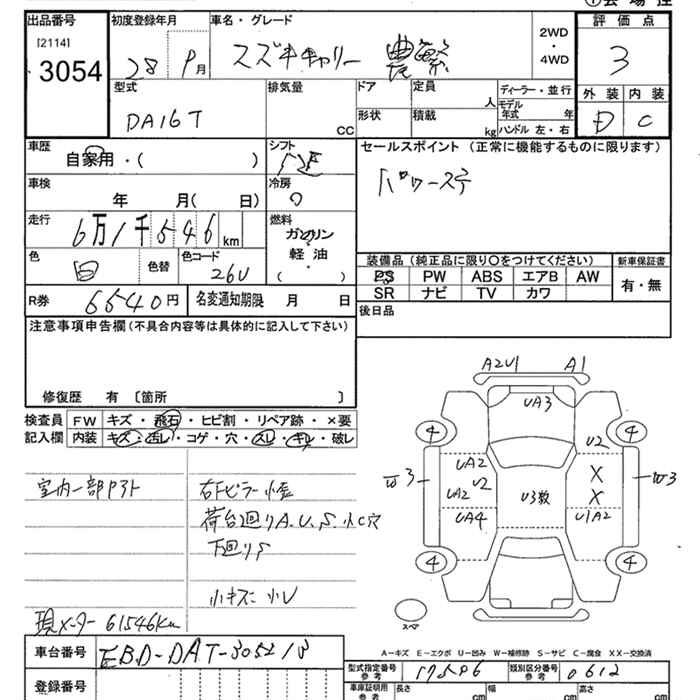 ①会場控
出品番号 初度登録年月 車名・グレード 2WD・4WD 評価点
[2114]
3054 28 9月 スズキキャリー 農繁 3
型式 排気量 ドア 定員 人 ディーラー・並行 外装 内装
DA16T CC 形状 積載 kg モデル年式 年 D C
ハンドル 左・右
車歴 自家用・( ) シフト セールスポイント (正常に機能するものに限ります)
車検 年 月( 日) 冷房 パワーステ
走行 6万1千546km 燃料 ガソリン・軽油・( )
色 白 色替 色コード 26U
装備品 (純正品に限り○をつけてください) 新車保証書
PS PW ABS エアB AW 有・無
SR ナビ TV カワ
R券 6540円 名変通知期限 月 日 後日品
注意事項申告欄 (不具合内容等は具体的に記入して下さい)
修復歴 有 〔箇所 〕
検査員 FW キズ・飛石・ヒビ割・リペア跡・×要
記入欄 内装 キズ・汚レ・コゲ・穴・スレ・キレ・破レ
室内一部
右下ピラー小
荷台廻りA.U.S.小C穴
下廻りS
小キズ 小U
現メーター 61546Km
A2U1 A1
UA3
4 4
U2
UA2 X
3 UA2 U2 U3数 X 3
UA4 U1A2
4 4
スペア
A－キズ E－エクボ U－凹み W－補修跡 S－サビ C－腐食 XX－交換済
車台番号 EBD-DAT-305213
型式指定番号 参考 17506 類別区分番号 参考 0612
登録番号 車庫証明用 参考 長さ cm 幅 cm 高さ cm